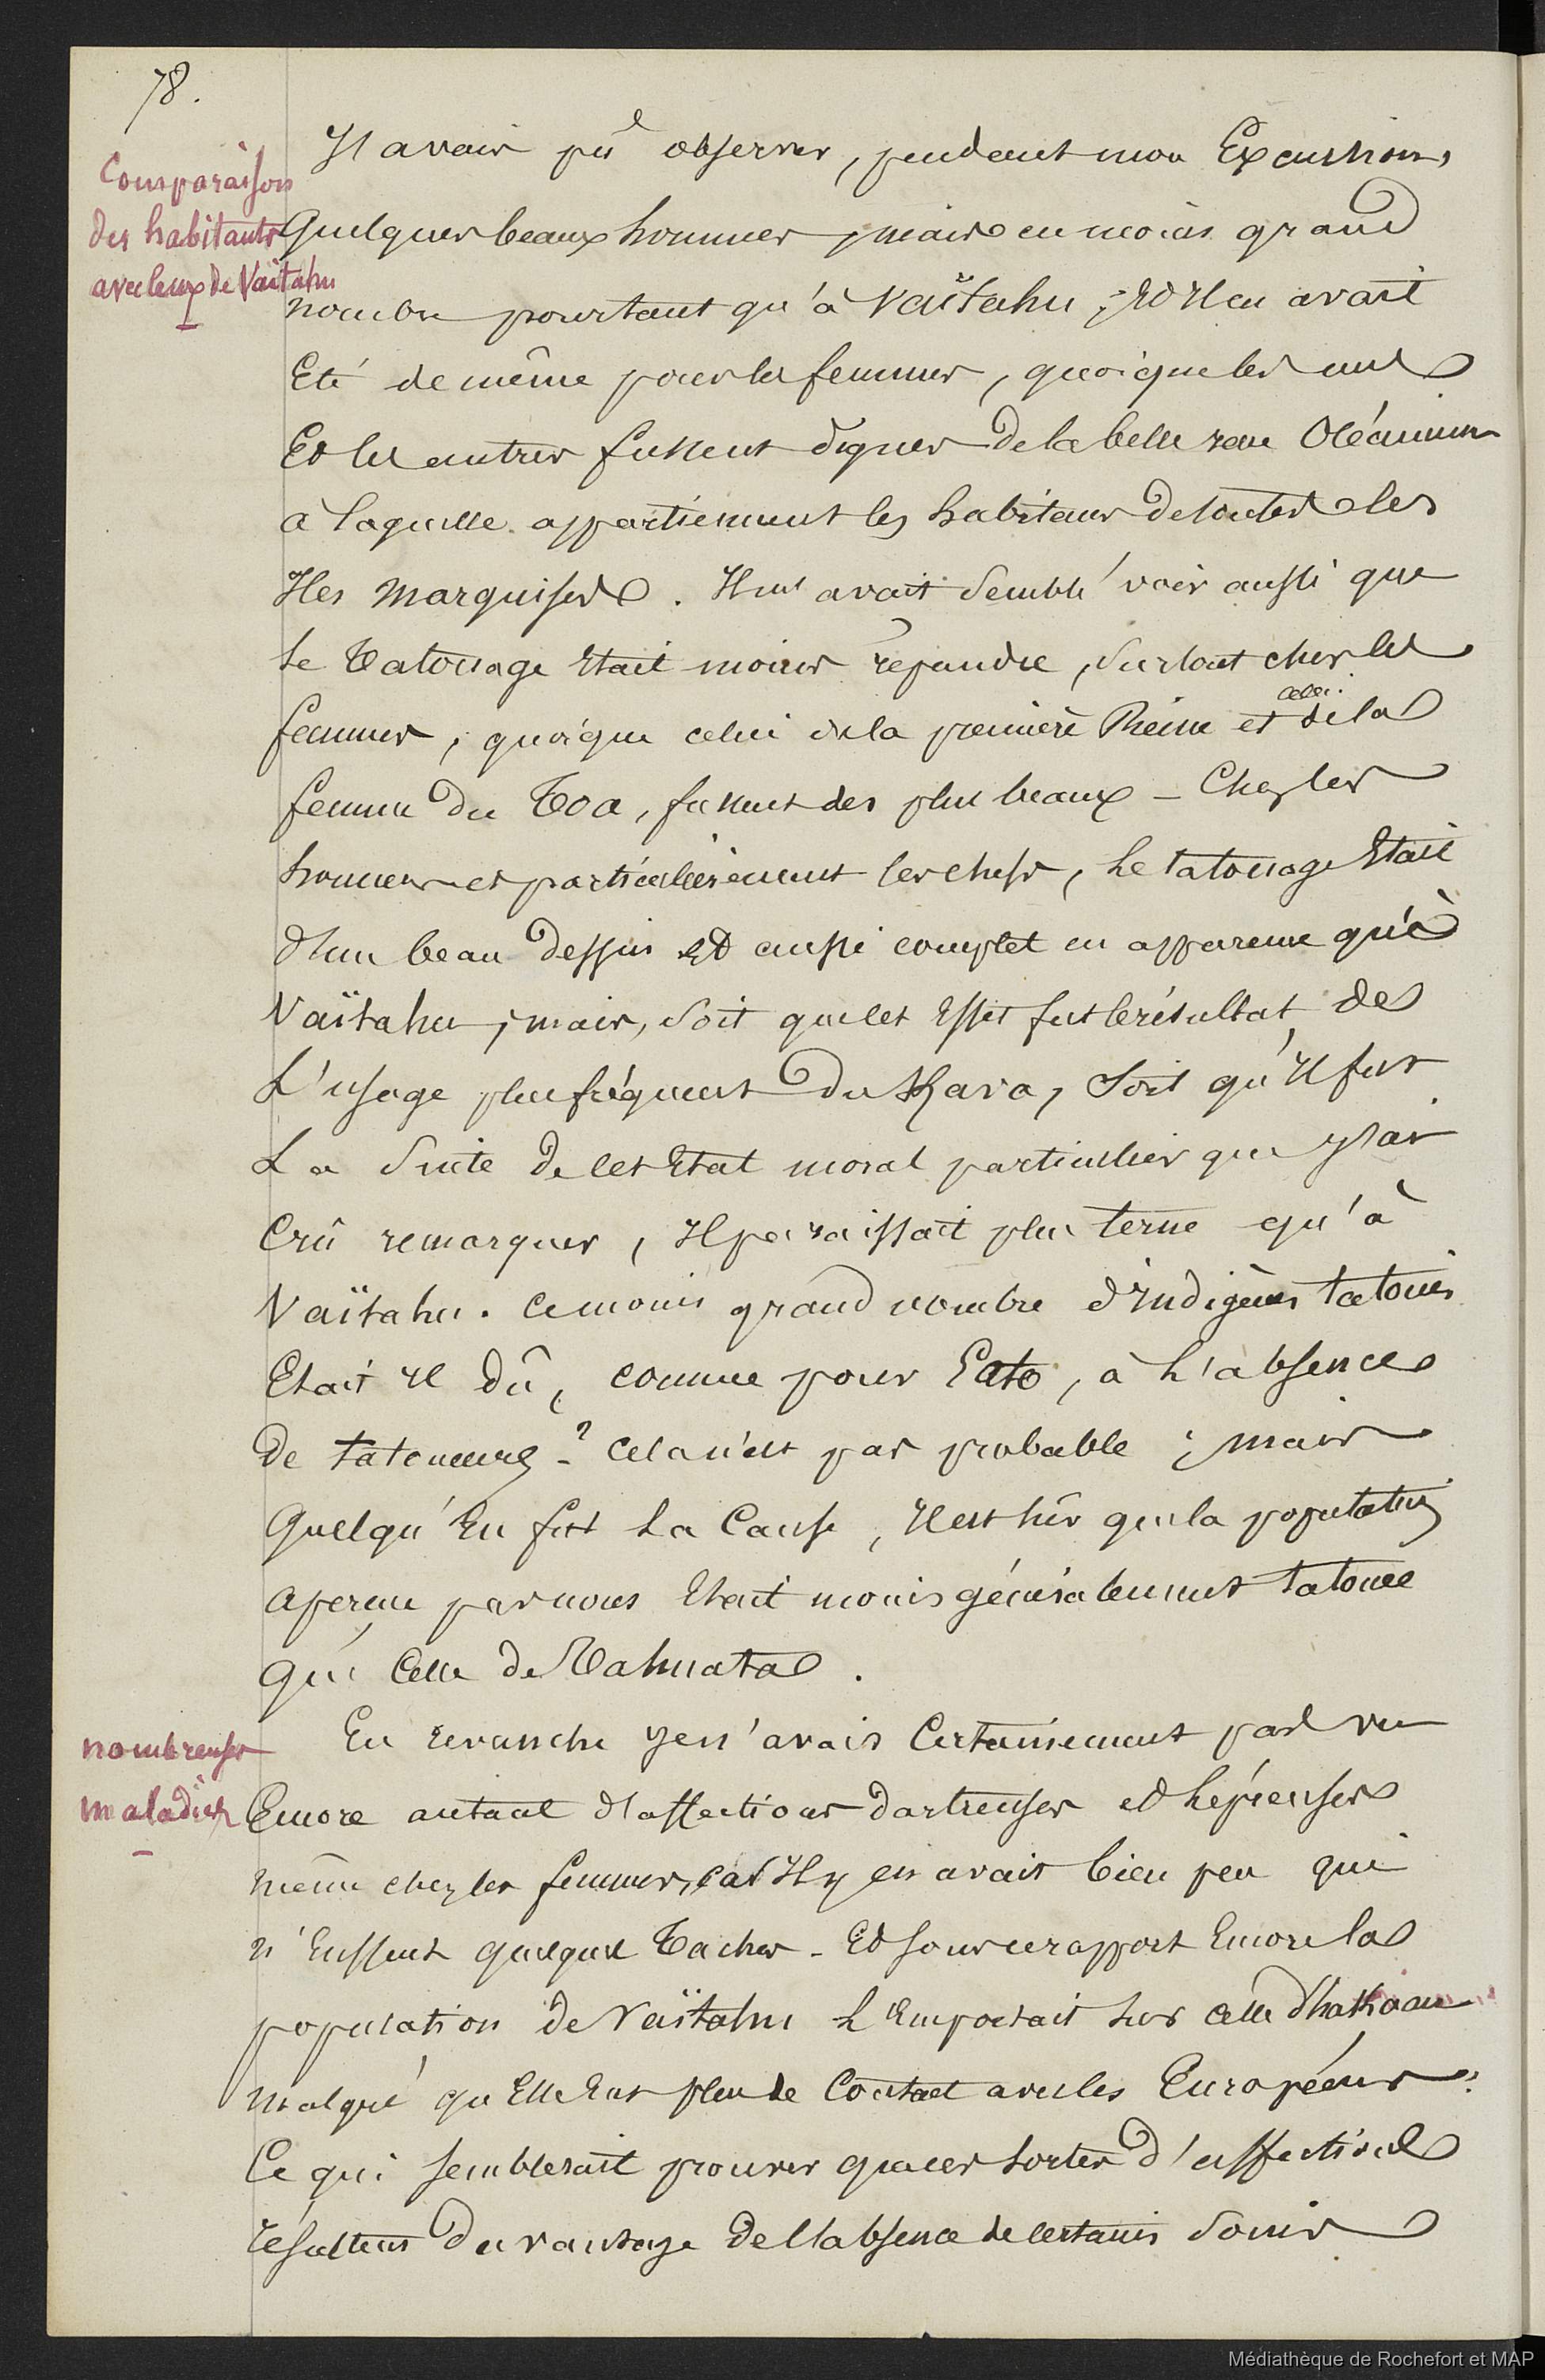 78.
Comparaison
des habitants
avec ceux de Vaïtahu
J'avais pû observer, pendant mon Excursion,
Quelques beaux hommes, mais en moins grand
nombre pourtant qu'à Vaïtahu ; Et Il en avait
Eté de même pour les femmes, quoique les uns
Et les autres fussent dignes de la belle race Océanienne
à laquelle appartiennent les habitans de toutes les
Iles Marquises. Il m'avait Semblé voir aussi que
Le Tatouage Etait moins répandu, Surtout chez les
femmes, quoique celui de la première Reine et celui de la
femme du Toa, fussent des plus beaux - Chez les
hommes et particulièrement les chefs, Le tatouage Etait
d'un beau dessin Et aussi complet en apparence qu'à
Vaïtahu ; mais, Soit que cet Effet fut le résultat de
L'usage plus fréquent du Kava, Soit qu'Il fut
La Suite de cet Etat moral particulier que J'ai
Crû remarquer, Il paraissait plus terne qu'à
Vaïtahu. Ce moins grand nombre d'Indigènes tatoués
Etait Il dû, comme pour Eato, à L'absence
de tatoueurs ? Cela n'est pas probable ; mais
Quelqu'En fut La Cause, Il est sûr que la population
aperçue par nous Etait moins généralement tatouée
que Celle de Tahuata.
nombreuses
maladies
En revanche Je n'avais Certainement pas vu
Encore autant d'affections dartreuses et Lépreuses
même chez les femmes, car Il y en avait bien peu qui
n'Eussent quelques Taches - Et sous ce rapport Encore la
population de Vaïtahu L'Emportait sur celle d'hakaau
malgré qu'Elle Eut plus de Contact avec les Européens.
Ce qui semblerait prouver que ces sortes d'affections
résultent davantage de l'absence de certains Soins
Médiathèque de Rochefort et MAP